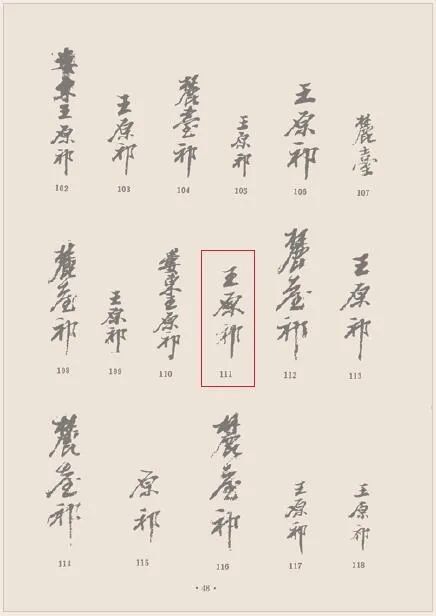 婁東王原祁
王原祁
麓臺祁
王原祁
王原祁
麓臺
102 103 104 105 106 107
麓臺祁
王原祁
婁東王原祁
王原祁
麓臺祁
王原祁
108 109 110 111 112 113
麓臺祁
原祁
麓臺祁
王原祁
王原祁
114 115 116 117 118
· 48 ·